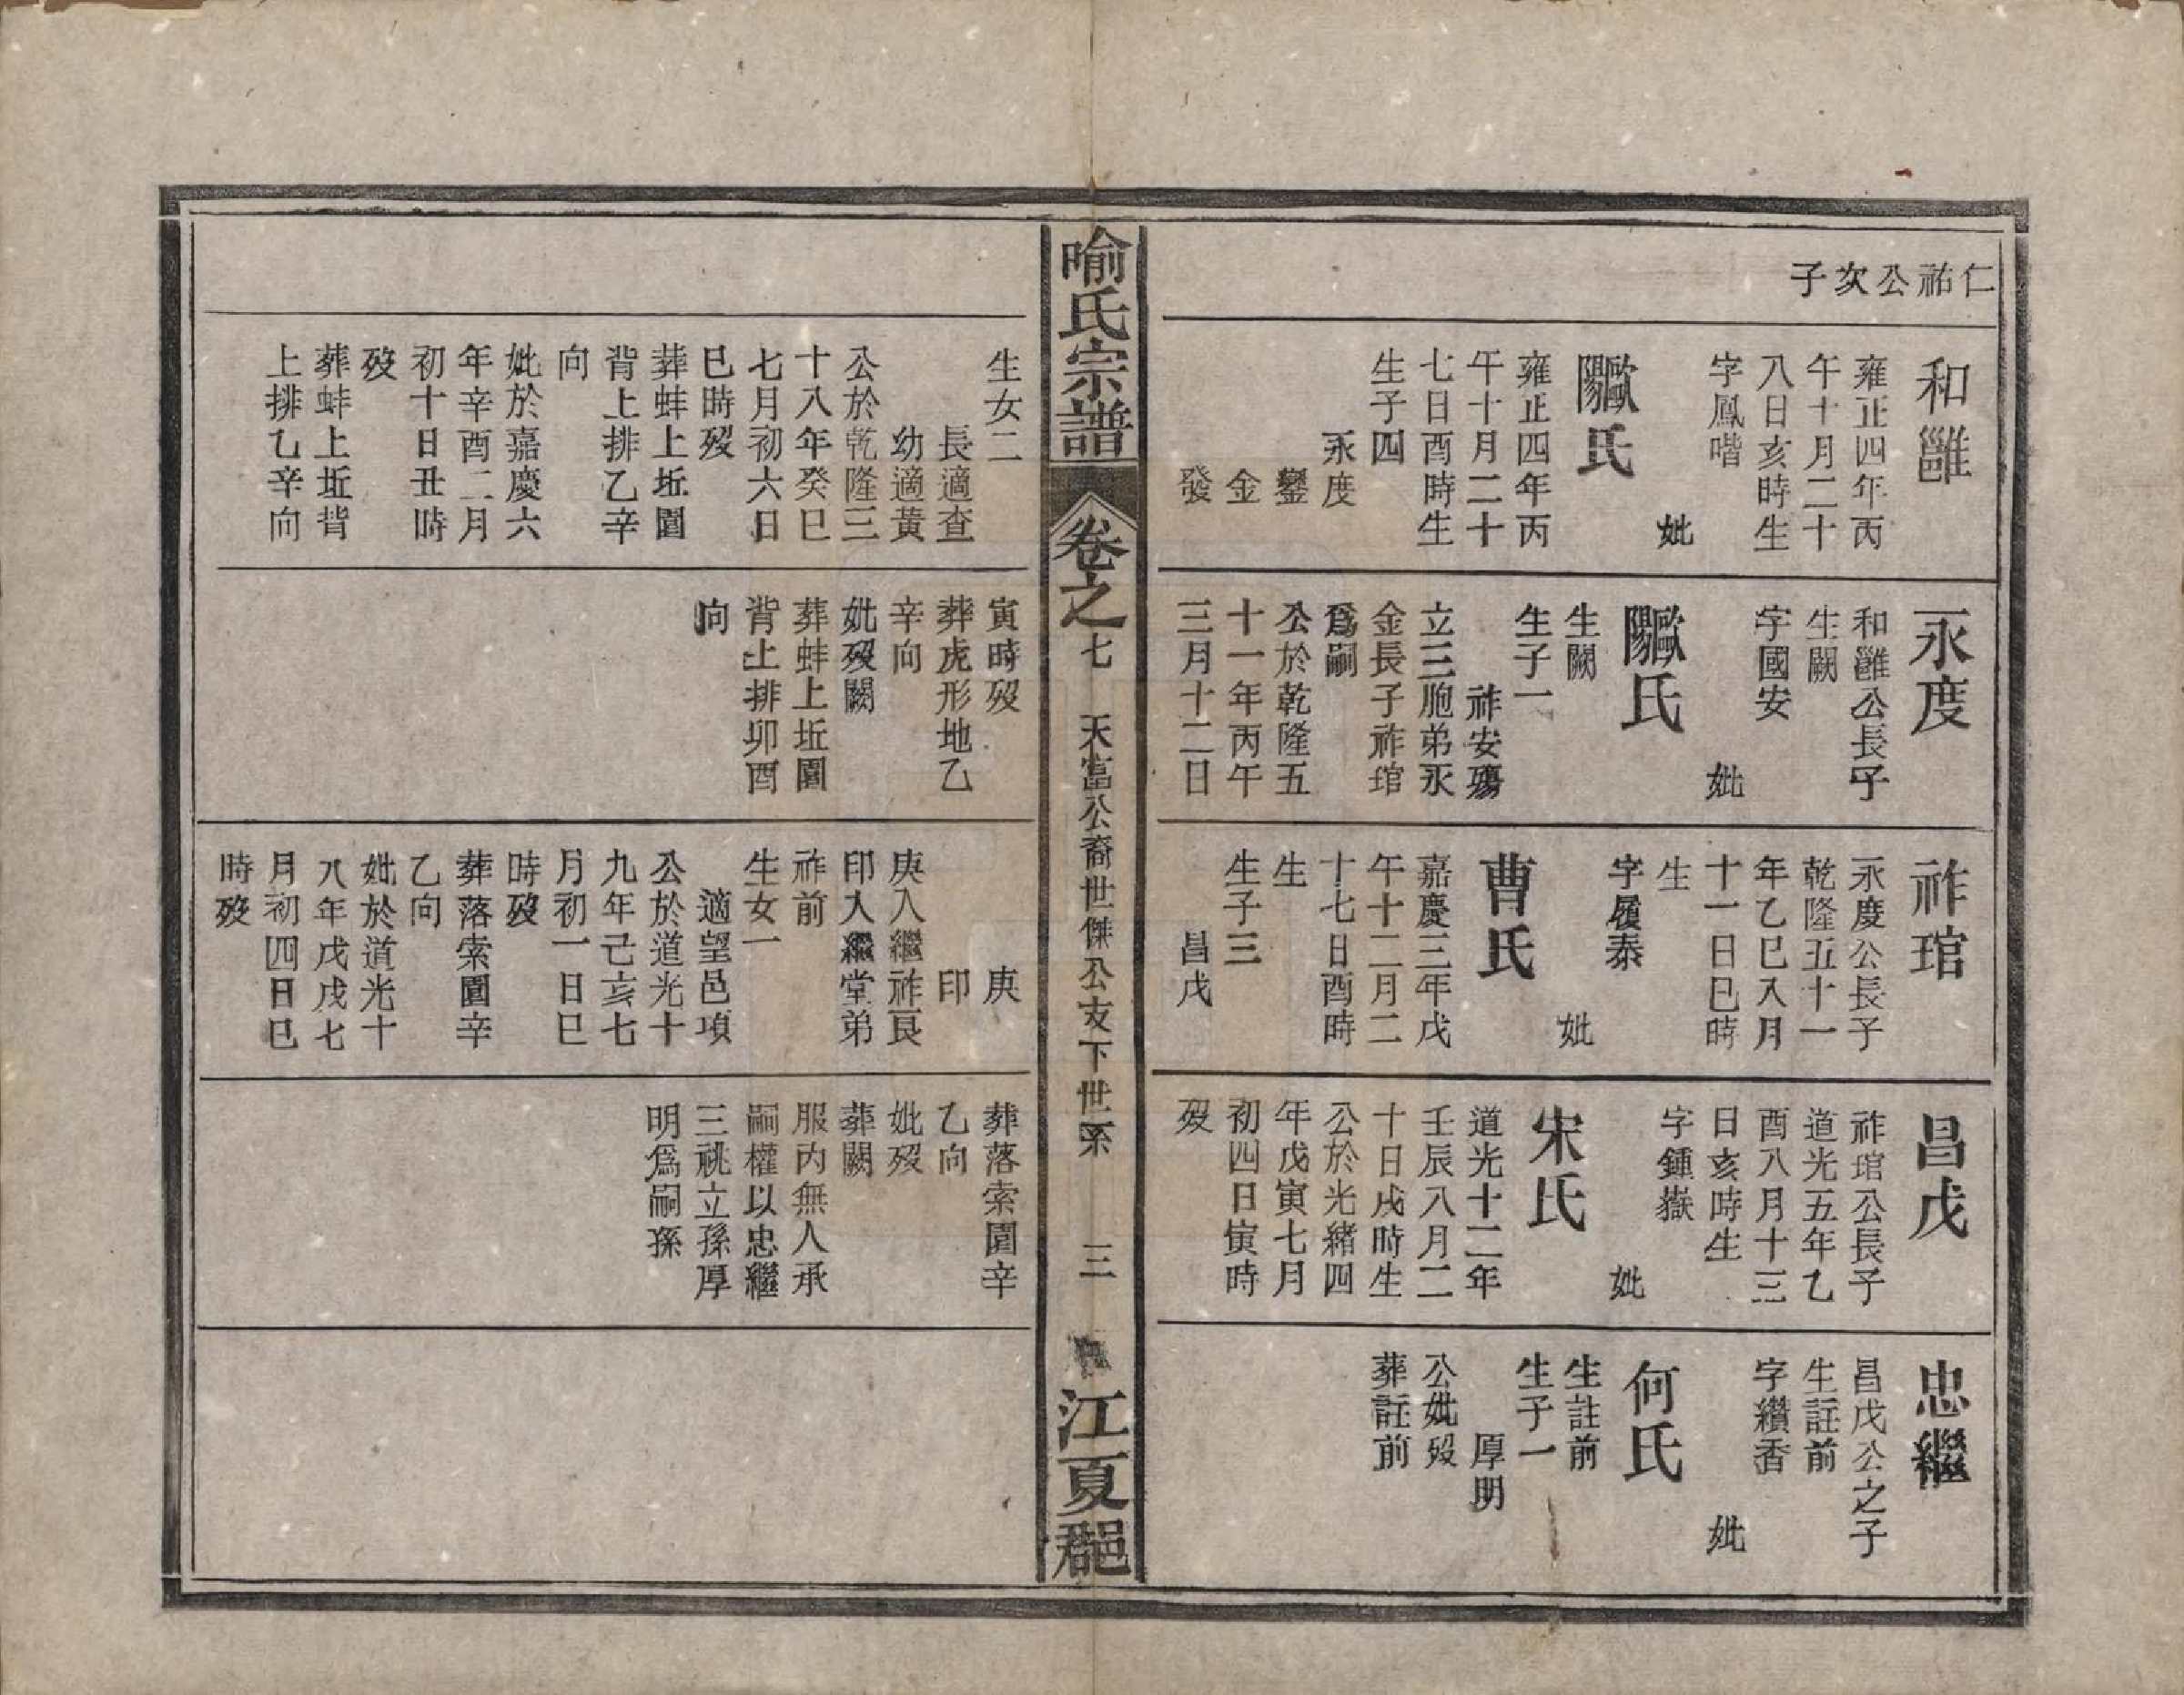 仁祐公次子
和雝
雍正四年丙
午十月二十
八日亥時生
字鳳喈
妣
歐陽氏
雍正四年丙
午十月二十
七日酉時生
生子四
永度
鑾
金
發
永度
和雝公長子
生闕
字國安
妣
歐陽氏
生闕
生子一
祚安殤
立三胞弟永
金長子祚琯
爲嗣
公於乾隆五
十一年丙午
三月十二日
祚琯
永度公長子
乾隆五十一
年乙巳八月
十一日巳時
生
字履泰
妣
曹氏
嘉慶三年戊
午十二月二
十七日酉時
生
生子三
昌戊
昌戊
祚琯公長子
道光五年乙
酉八月十三
日亥時生
字鍾嶽
妣
宋氏
道光十二年
壬辰八月二
十日戌時生
公於光緒四
年戊寅七月
初四日寅時
歿
忠繼
昌戊公之子
生註前
字纘香
妣
何氏
生註前
生子一
厚明
公妣歿
葬註前
喻氏宗譜
卷之七 天富公裔世傑公支下世系 三
江夏郡
生女二
長適查
幼適黃
公於乾隆三
十八年癸巳
七月初六日
巳時歿
葬蚌上坵園
背上排乙辛
向
妣於嘉慶六
年辛酉二月
初十日丑時
歿
葬蚌上坵背
上排乙辛向
寅時歿
葬虎形地乙
辛向
妣歿闕
葬蚌上坵園
背上排卯酉
向
庚
印
庚入繼祚良
印入繼堂弟
祚前
生女一
適望邑項
公於道光十
九年己亥七
月初一日巳
時歿
葬落索園辛
乙向
妣於道光十
八年戊戌七
月初四日巳
時歿
葬落索園辛
乙向
妣歿
葬闕
服內無人承
嗣權以忠繼
三祧立孫厚
明爲嗣孫